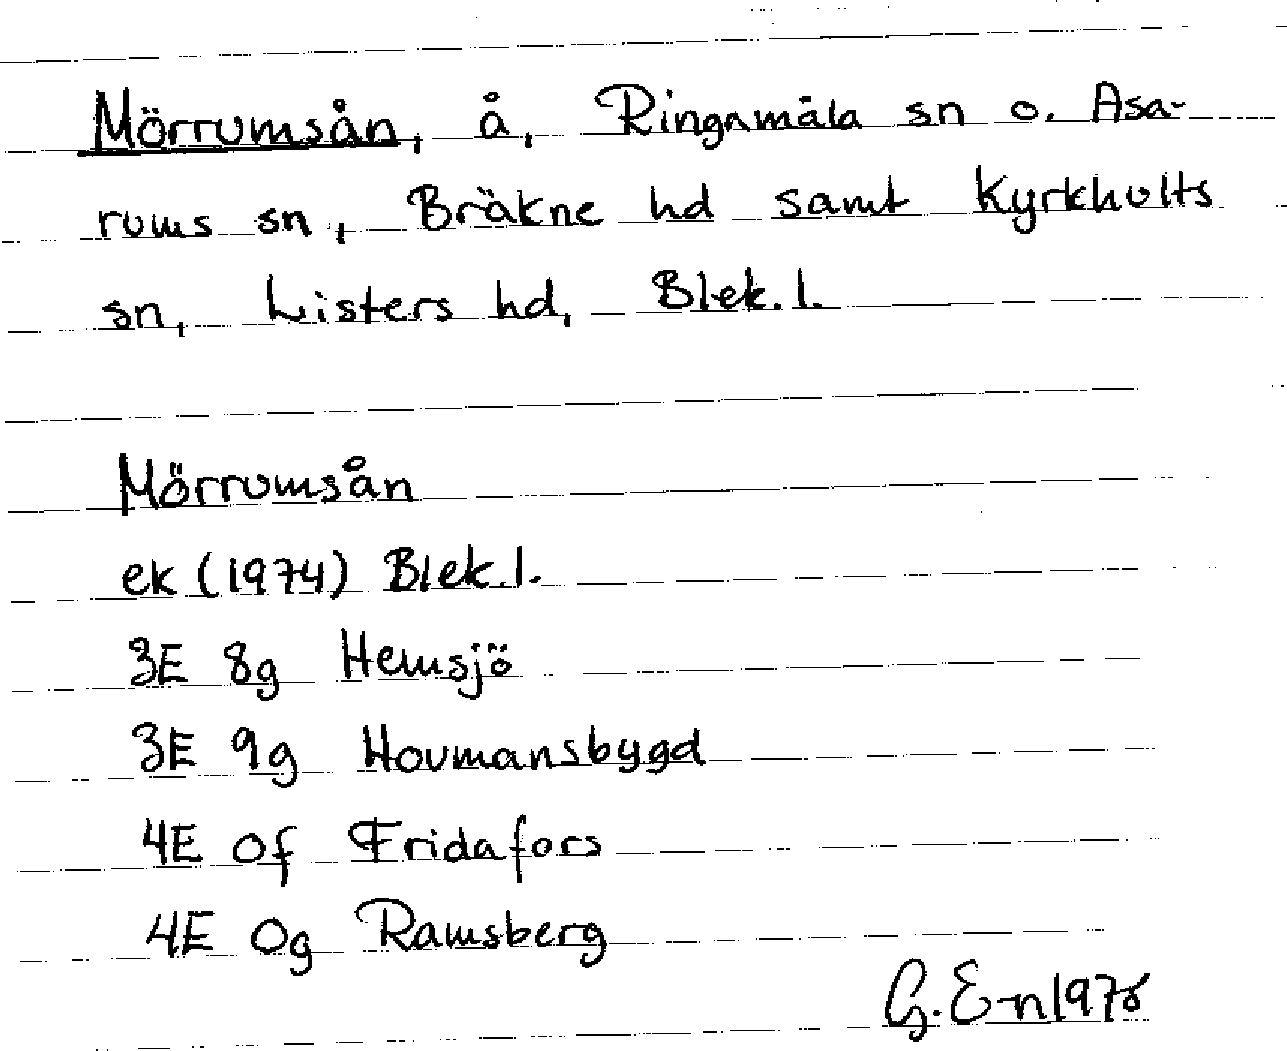 Mörrumsån, å, Ringamåla sn o. Asa-
rums sn, Bräkne hd samt Kyrkhults
sn, Listers hd, Blek. l.
Mörrumsån
ek (1974) Blek. l.
3E 8g Hemsjö
3E 9g Hovmansbygd
4E 0f Fridafors
4E 0g Ramsberg
G. E-n